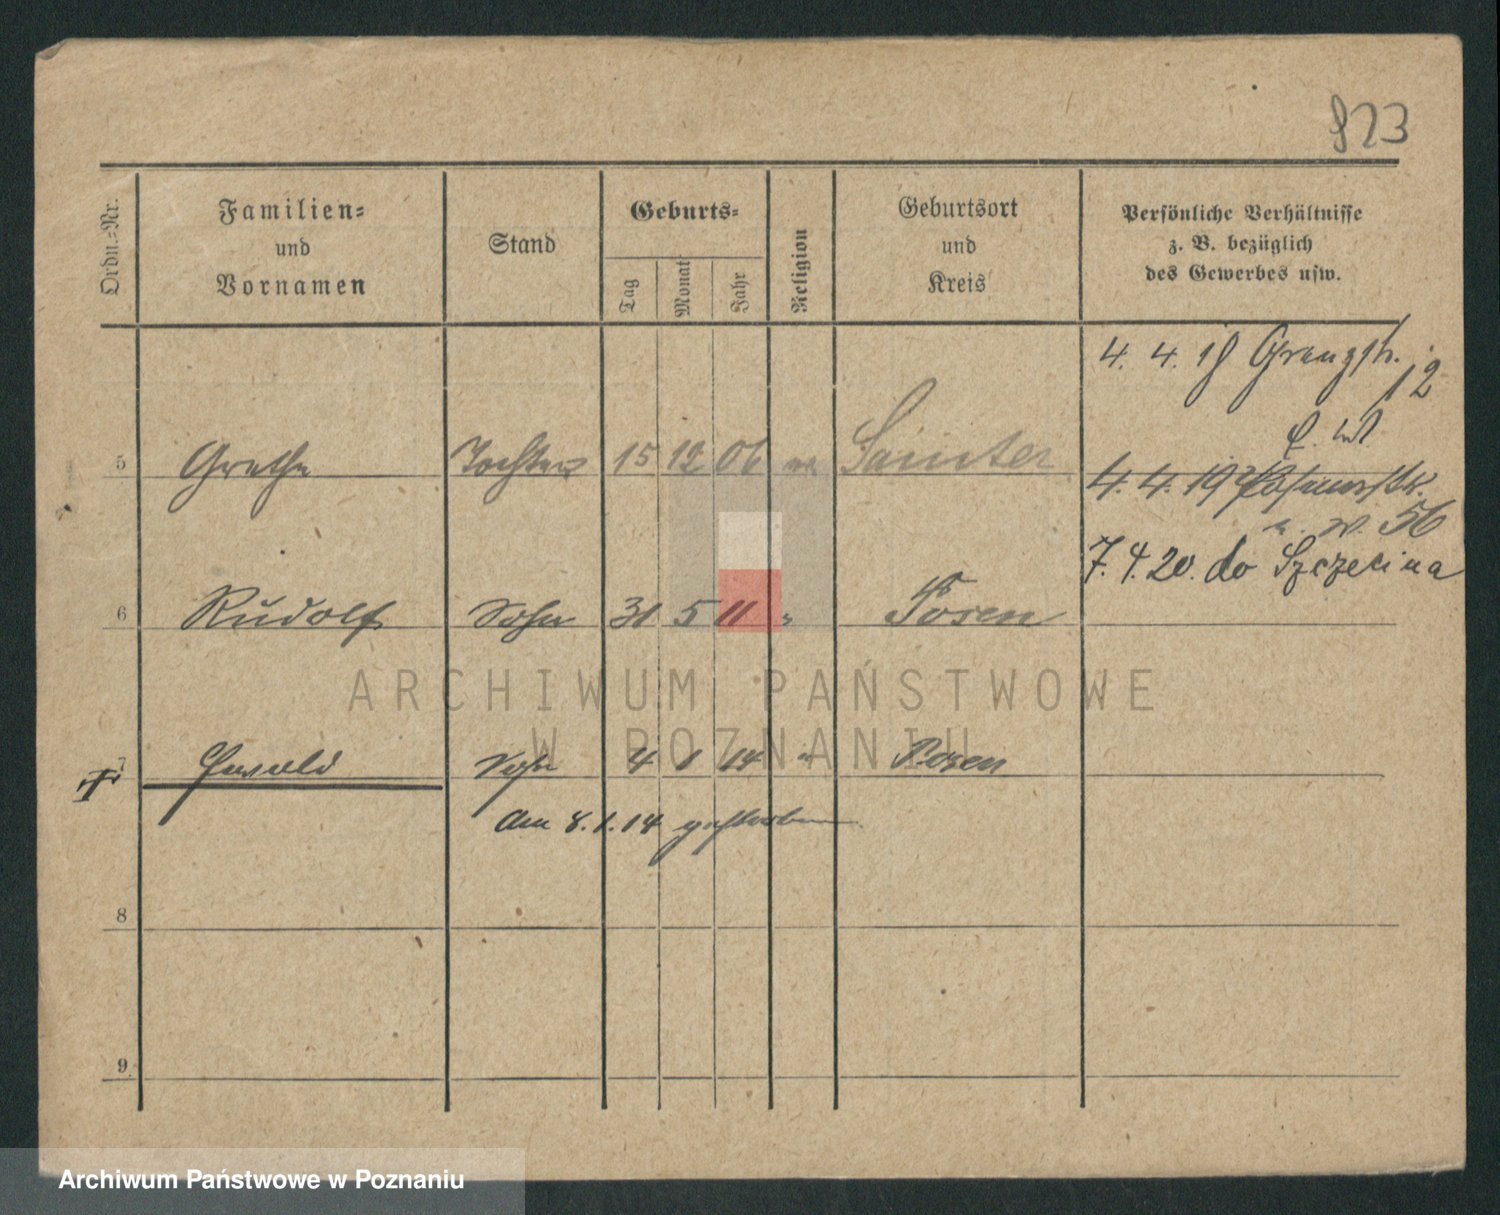 823
Ordn.-Nr.
Familien-
und
Vornamen
Stand
Geburts-
Tag
Monat
Jahr
Religion
Geburtsort
und
Kreis
Persönliche Verhältnisse
z. B. bezüglich
des Gewerbes usw.
4. 4. 18 Grenzstr. 12
5 Grethe Tochter 15 12 06 Samter
4. 4. 19
56
7. 4. 20. do Szczecina
6 Rudolf Sohn 31 5 11 " Posen
ARCHIWUM PAŃSTWOWE
W POZNANIU
7 Ewald Sohn 4 1 14 " Posen
am 8.1.14 gestorben
8
9
Archiwum Państwowe w Poznaniu